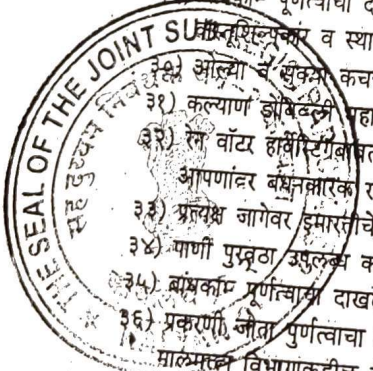 पूर्णत्वाचा द
वास्तूशिल्पकार व स्था
३०) ओल्या व सुक्या कच
३१) कल्याण डोंबिवली महा
३२) रेन वॉटर हार्वेस्टिंगबाबत
आपणांवर बंधनकारक र
३३) प्रत्यक्ष जागेवर इमारतीचे
३४) पाणी पुरवठा उपलब्ध क
३५) बांधकाम पूर्णत्वाचा दाखल
३६) प्रकरणी जोता पुर्णत्वाचा
मालमत्ता विभागाकडील
THE SEAL OF THE JOINT SU
सह दुय्यम निबंधक